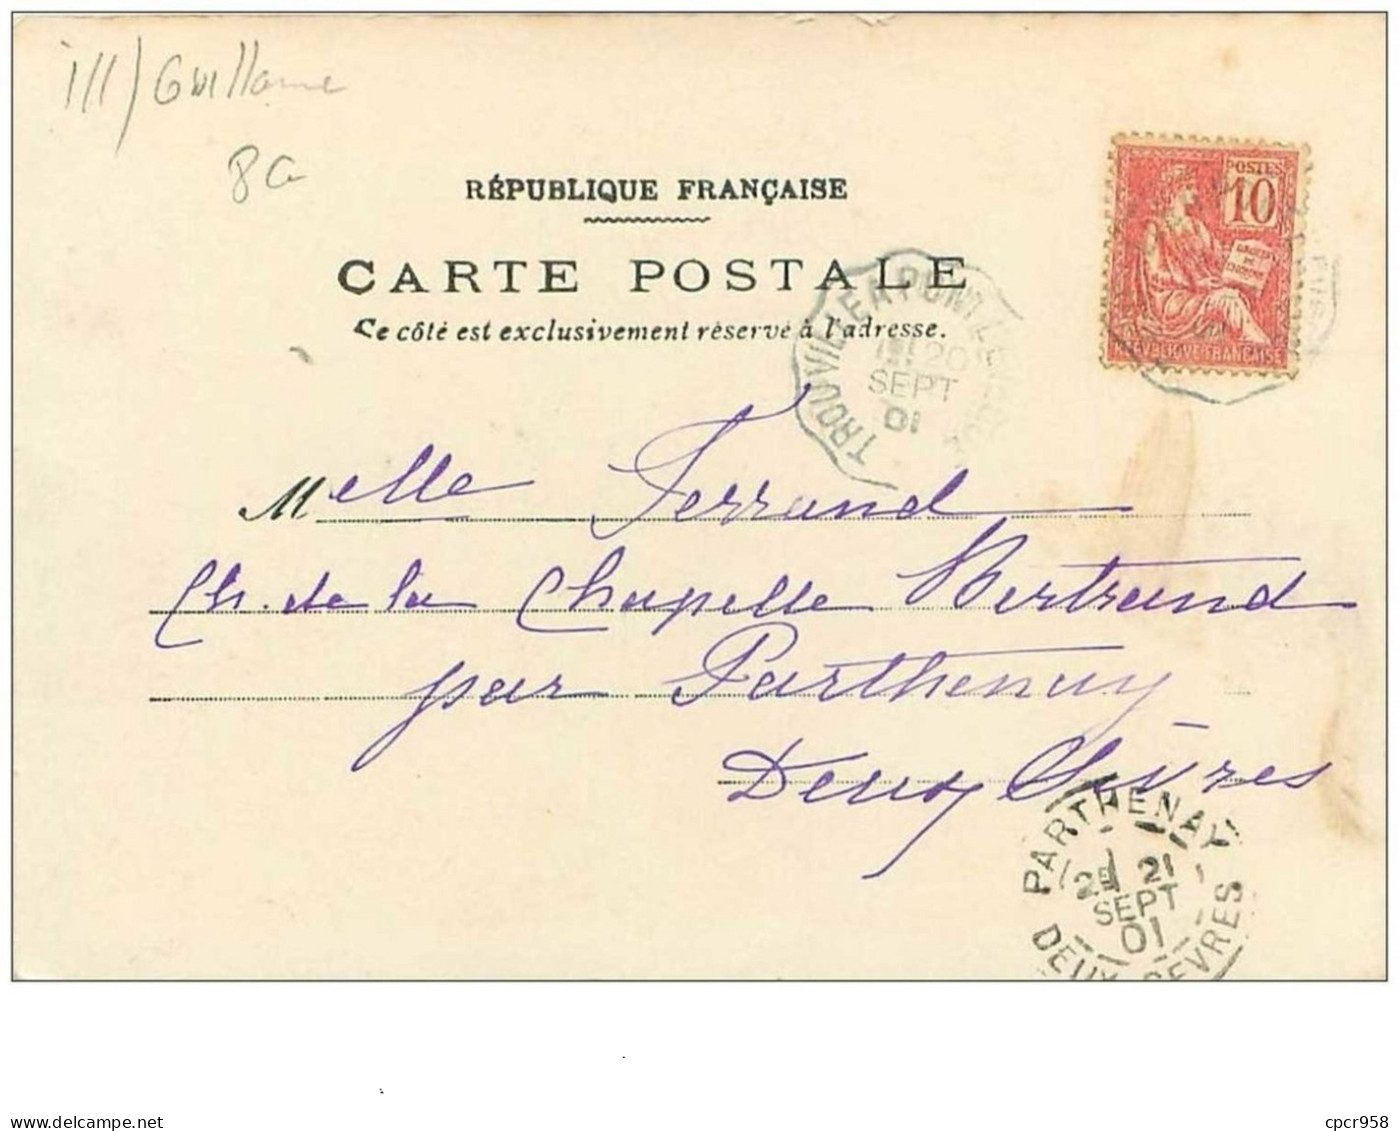 ill) Guillaume
8a
RÉPUBLIQUE FRANÇAISE
CARTE POSTALE
Ce côté est exclusivement réservé à l'adresse.
POSTES
10
DROITS
DE
L'HOMME
REPUBLIQUE FRANÇAISE
TROUVILLE A PONT L'EVEQUE
20
SEPT
01
Melle Ferrand
Ch. de la Chapelle Bertrand
par Parthenay
Deux Sèvres
PARTHENAY
2E 21
SEPT
01
DEUX SEVRES
delcampe.net
cpcr958